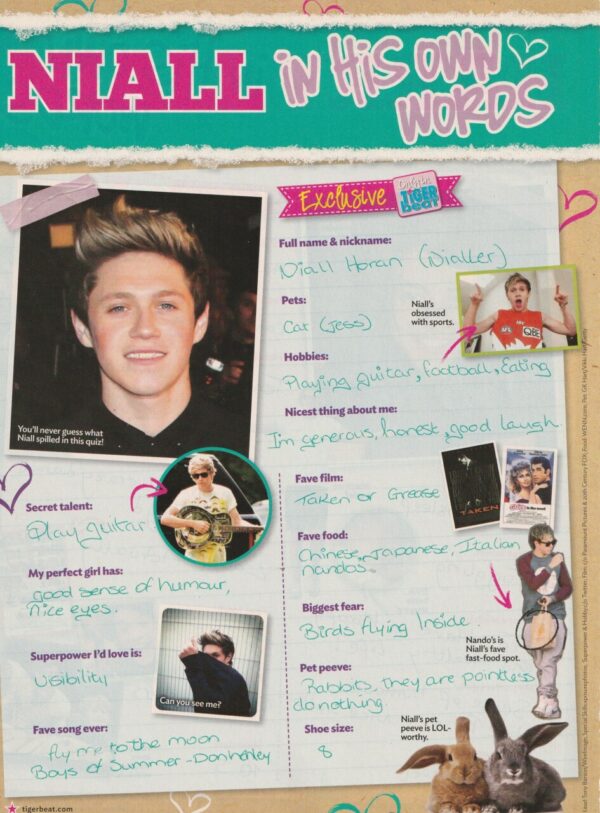 NIALL IN HIS OWN
WORDS
Exclusive
Only in
TIGER
BEAT
Full name & nickname:
Niall Horan (Nialler)
Pets:
Cat (Jess)
Niall's
obsessed
with sports.
Hobbies:
Playing guitar, football, Eating
Nicest thing about me:
I'm generous, honest, good laugh
You'll never guess what
Niall spilled in this quiz!
Secret talent:
Play guitar
My perfect girl has:
good sense of humour,
nice eyes.
Superpower I'd love is:
Visibility
Can you see me?
Fave song ever:
fly me to the moon
Boys of Summer - Don henley
Fave film:
Taken or Grease
TAKEN
Fave food:
Chinese, Japanese, Italian
nandos
Biggest fear:
Birds flying Inside.
Nando's is
Niall's fave
fast-food spot.
Pet peeve:
Rabbits, they are pointless
do nothing
Shoe size:
8
Niall's pet
peeve is LOL-
worthy.
tigerbeat.com